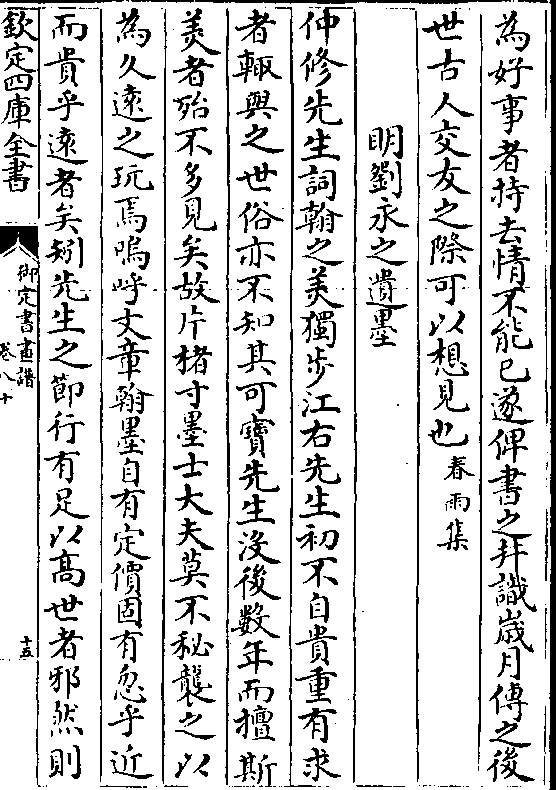 為好事者持去情不能已遂俾書之并識歲月傳之後
世古人交友之際可以想見也春雨集
明劉永之遺墨
仲修先生詞翰之美獨步江右先生初不自貴重有求
者輙與之世俗亦不知其可寶先生沒後数年而擅斯
美者殆不多見矣故片楮寸墨士大夫莫不秘襲之以
為久遠之玩焉嗚呼文章翰墨自有定價固有忽乎近
而貴乎遠者矣矧先生之節行有足以高世者邪然則
欽定四庫全書
御定書畫譜
卷八十
十五